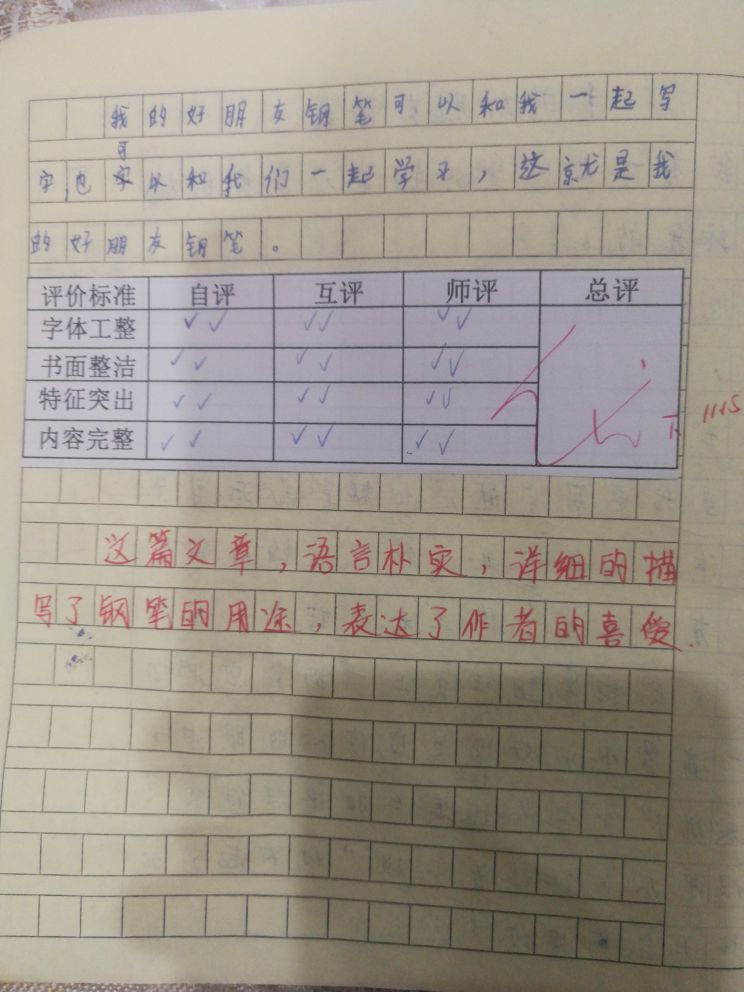 我的好朋友钢笔可以和我一起写
字,也可以和我们一起学习,这就是我
的好朋友钢笔。
评价标准 自评 互评 师评 总评
字体工整 ✓✓ ✓✓ ✓✓
书面整洁 ✓✓ ✓✓ ✓✓
特征突出 ✓✓ ✓✓ ✓✓
内容完整 ✓✓ ✓✓ ✓✓
11.15
这篇文章,语言朴实,详细的描
写了钢笔的用途,表达了作者的喜爱.